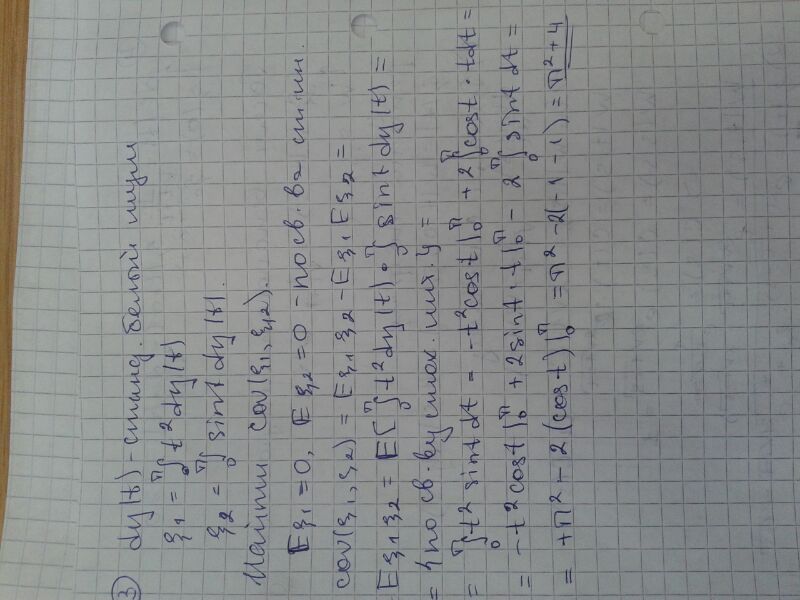 ③ dy(t) - станд. белый шум
ξ1 = ∫₀^π t² dy(t)
ξ2 = ∫₀^π sint dy(t).
Найти cov(ξ1, ξ2).
Eξ1 = 0, Eξ2 = 0 - по св-ву ст. ин.
cov(ξ1, ξ2) = Eξ1ξ2 - Eξ1 Eξ2 =
= Eξ1ξ2 = E[∫₀^π t² dy(t) · ∫₀^π sint dy(t) =
= {по св-ву стох. инт. } =
= ∫₀^π t² sint dt = -t² cost |₀^π + 2∫₀^π cost · t dt =
= -t² cost |₀^π + 2 sint · t |₀^π - 2∫₀^π sint dt =
= +π² + 2 (cost) |₀^π = π² - 2(-1 - 1) = π² + 4